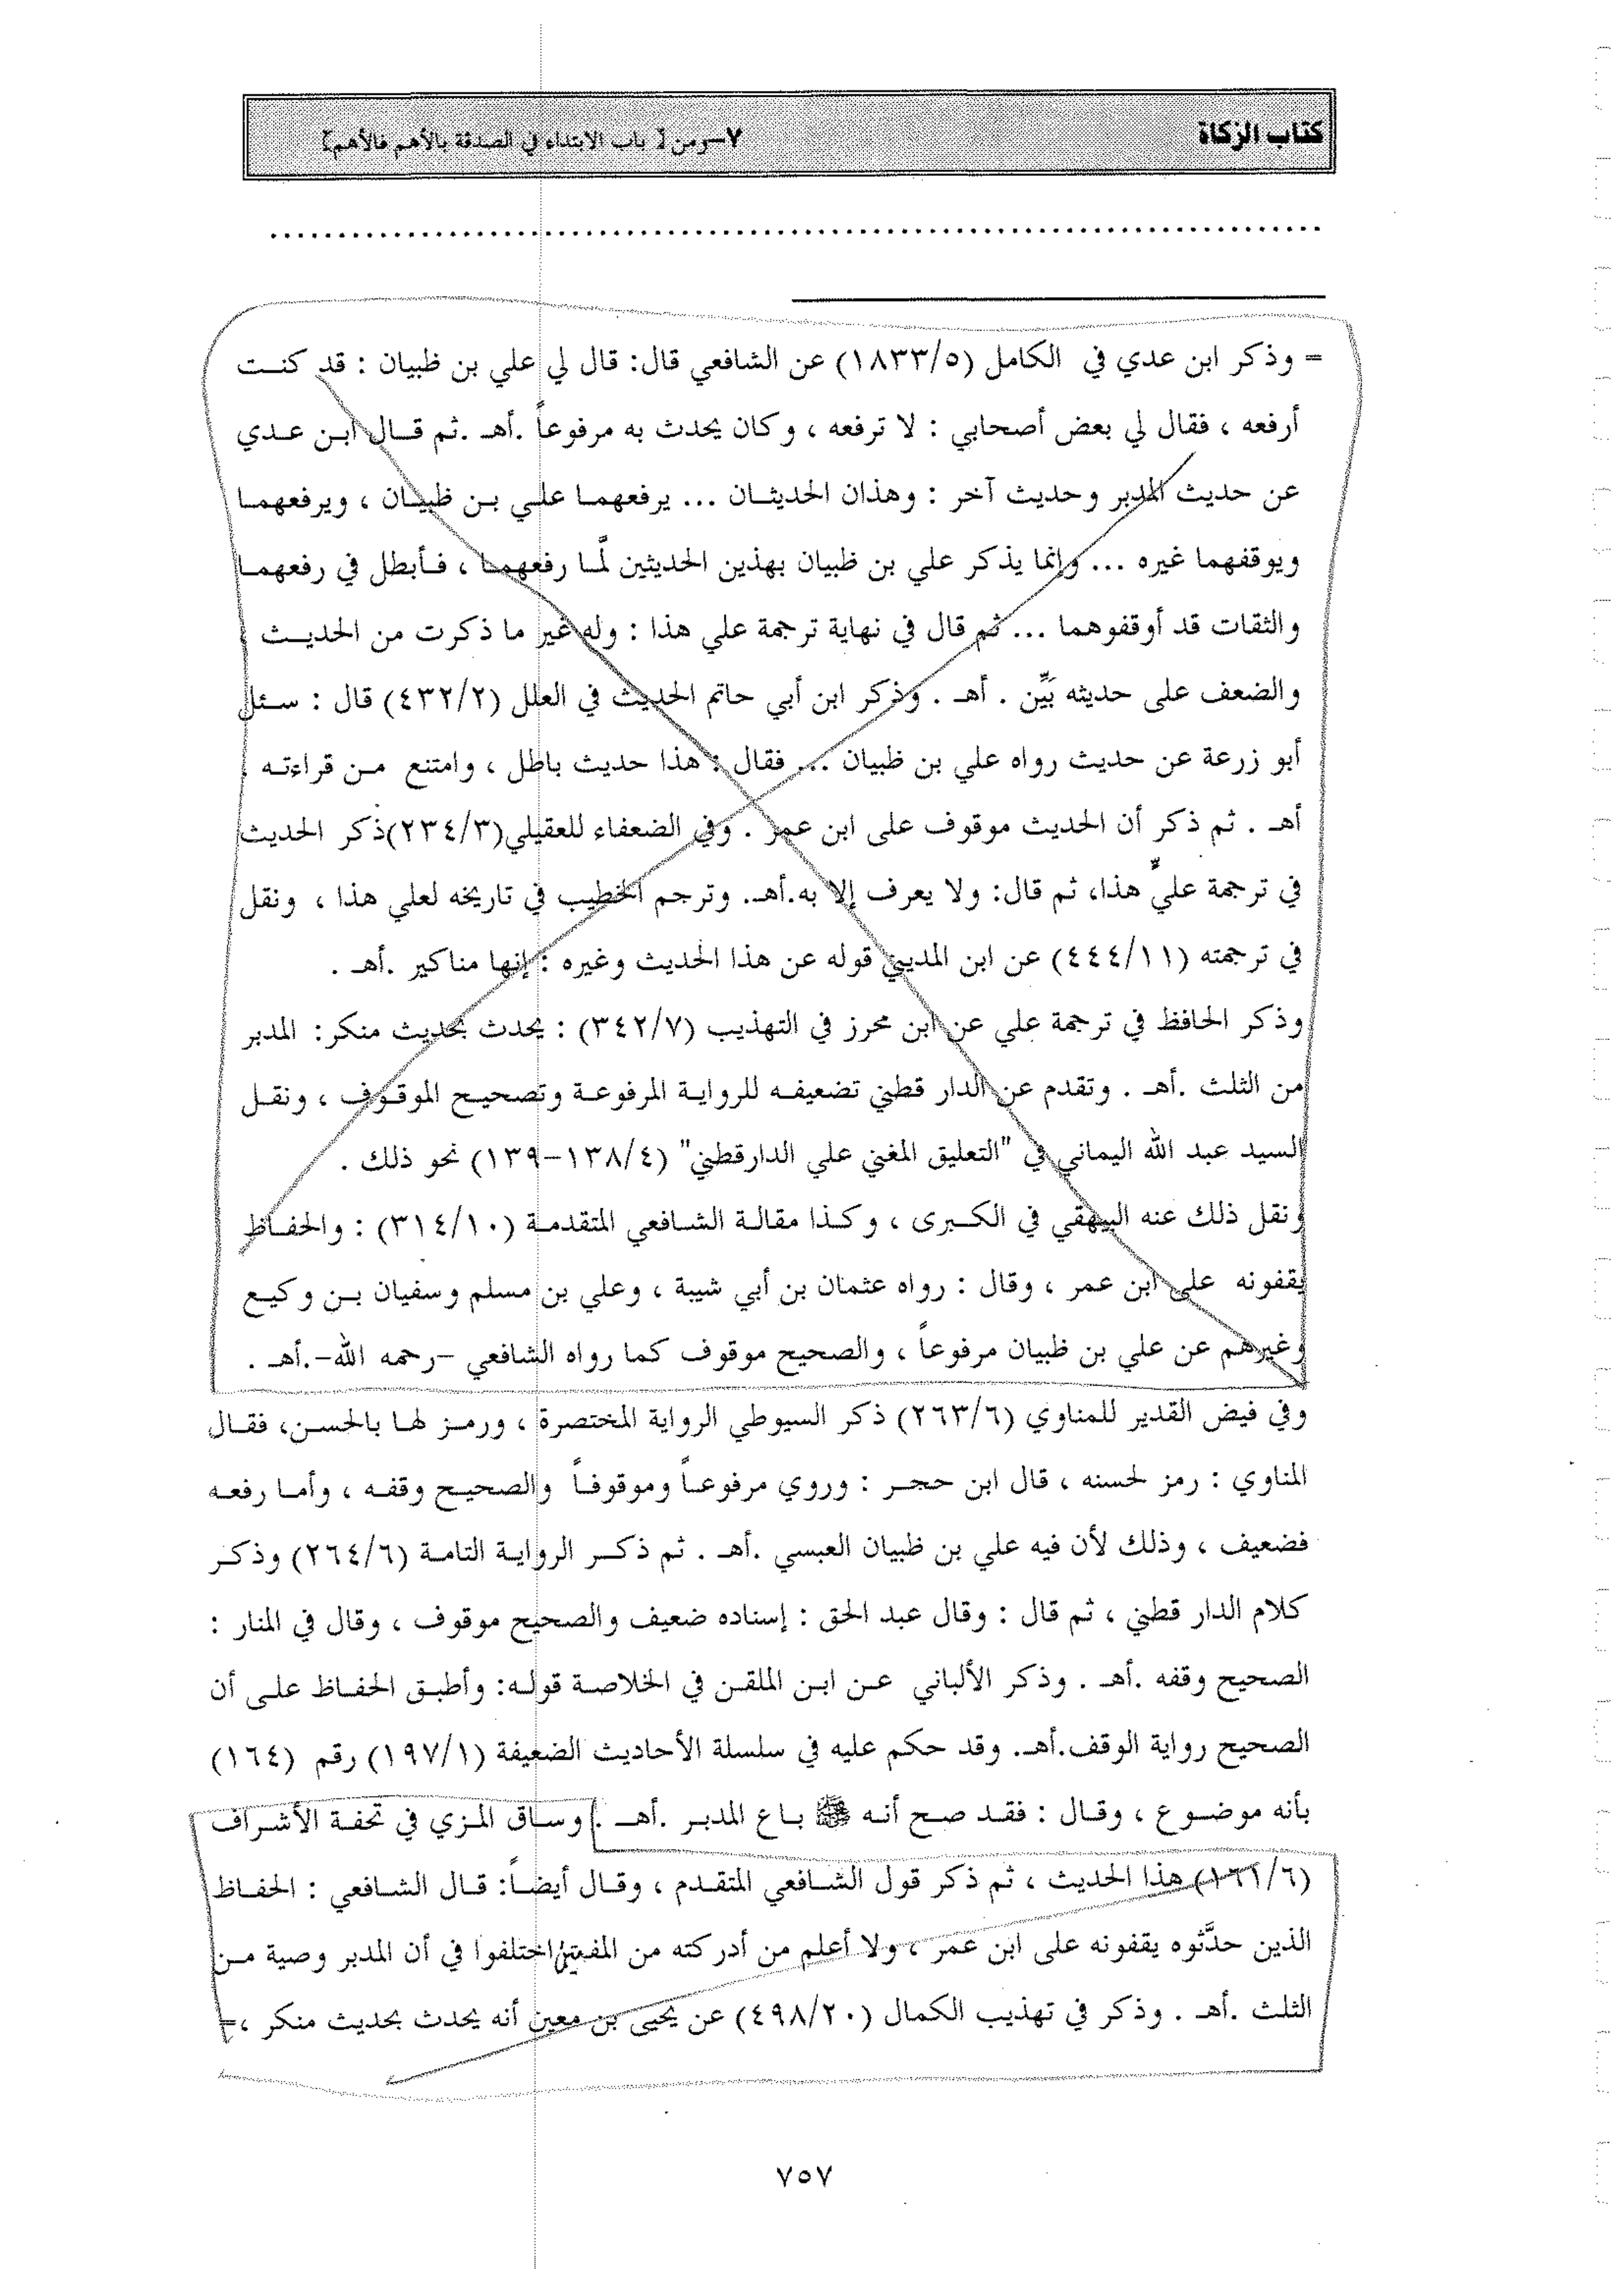 كتاب الزكاة ٧-ومن [ باب الابتداء في الصدقة بالأهم فالأهم]
................................................................................
= وذكر ابن عدي في الكامل (١٨٣٣/٥) عن الشافعي قال: قال لي علي بن ظبيان : قد كنت
أرفعه ، فقال لي بعض أصحابي : لا ترفعه ، وكان يحدث به مرفوعاً .أهـ .ثم قال ابن عدي
عن حديث المدبر وحديث آخر : وهذان الحديثان ... يرفعهما علي بن ظبيان ، ويرفعهما
ويوقفهما غيره ... وإنما يذكر علي بن ظبيان بهذين الحديثين لمَّا رفعهما ، فأبطل في رفعهما
والثقات قد أوقفوهما ... ثم قال في نهاية ترجمة علي هذا : وله غير ما ذكرت من الحديث ،
والضعف على حديثه بَيِّن . أهـ . وذكر ابن أبي حاتم الحديث في العلل (٤٣٢/٢) قال : سئل
أبو زرعة عن حديث رواه علي بن ظبيان ... فقال : هذا حديث باطل ، وامتنع من قراءته .
أهـ . ثم ذكر أن الحديث موقوف على ابن عمر . وفي الضعفاء للعقيلي(٢٣٤/٣)ذكر الحديث
في ترجمة عليٍّ هذا، ثم قال: ولا يعرف إلا به.أهـ. وترجم الخطيب في تاريخه لعلي هذا ، ونقل
في ترجمته (٤٤٤/١١) عن ابن المديني قوله عن هذا الحديث وغيره : إنها مناكير .أهـ .
وذكر الحافظ في ترجمة علي عن ابن محرز في التهذيب (٣٤٢/٧) : يحدث بحديث منكر: المدبر
من الثلث .أهـ . وتقدم عن الدار قطني تضعيفه للرواية المرفوعة وتصحيح الموقوف ، ونقل
السيد عبد الله اليماني في "التعليق المغني علي الدارقطني" (١٣٨/٤-١٣٩) نحو ذلك .
ونقل ذلك عنه البيهقي في الكبرى ، وكذا مقالة الشافعي المتقدمة (٣١٤/١٠) : والحفاظ
يقفونه على ابن عمر ، وقال : رواه عثمان بن أبي شيبة ، وعلي بن مسلم وسفيان بن وكيع
وغيرهم عن علي بن ظبيان مرفوعاً ، والصحيح موقوف كما رواه الشافعي -رحمه الله-.أهـ .
وفي فيض القدير للمناوي (٢٦٣/٦) ذكر السيوطي الرواية المختصرة ، ورمز لها بالحسن، فقال
المناوي : رمز لحسنه ، قال ابن حجر : وروي مرفوعاً وموقوفاً والصحيح وقفه ، وأما رفعه
فضعيف ، وذلك لأن فيه علي بن ظبيان العبسي .أهـ . ثم ذكر الرواية التامة (٢٦٤/٦) وذكر
كلام الدار قطني ، ثم قال : وقال عبد الحق : إسناده ضعيف والصحيح موقوف ، وقال في المنار :
الصحيح وقفه .أهـ . وذكر الألباني عن ابن الملقن في الخلاصة قوله: وأطبق الحفاظ على أن
الصحيح رواية الوقف.أهـ. وقد حكم عليه في سلسلة الأحاديث الضعيفة (١٩٧/١) رقم (١٦٤)
بأنه موضوع ، وقال : فقد صح أنه ﷺ باع المدبر .أهـ . وساق المزي في تحفة الأشراف
(١٦١/٦) هذا الحديث ، ثم ذكر قول الشافعي المتقدم ، وقال أيضاً: قال الشافعي : الحفاظ
الذين حدَّثوه يقفونه على ابن عمر ، ولا أعلم من أدركته من المفتين اختلفوا في أن المدبر وصية من
الثلث .أهـ . وذكر في تهذيب الكمال (٤٩٨/٢٠) عن يحيى بن معين أنه يحدث بحديث منكر ،=
٧٥٧